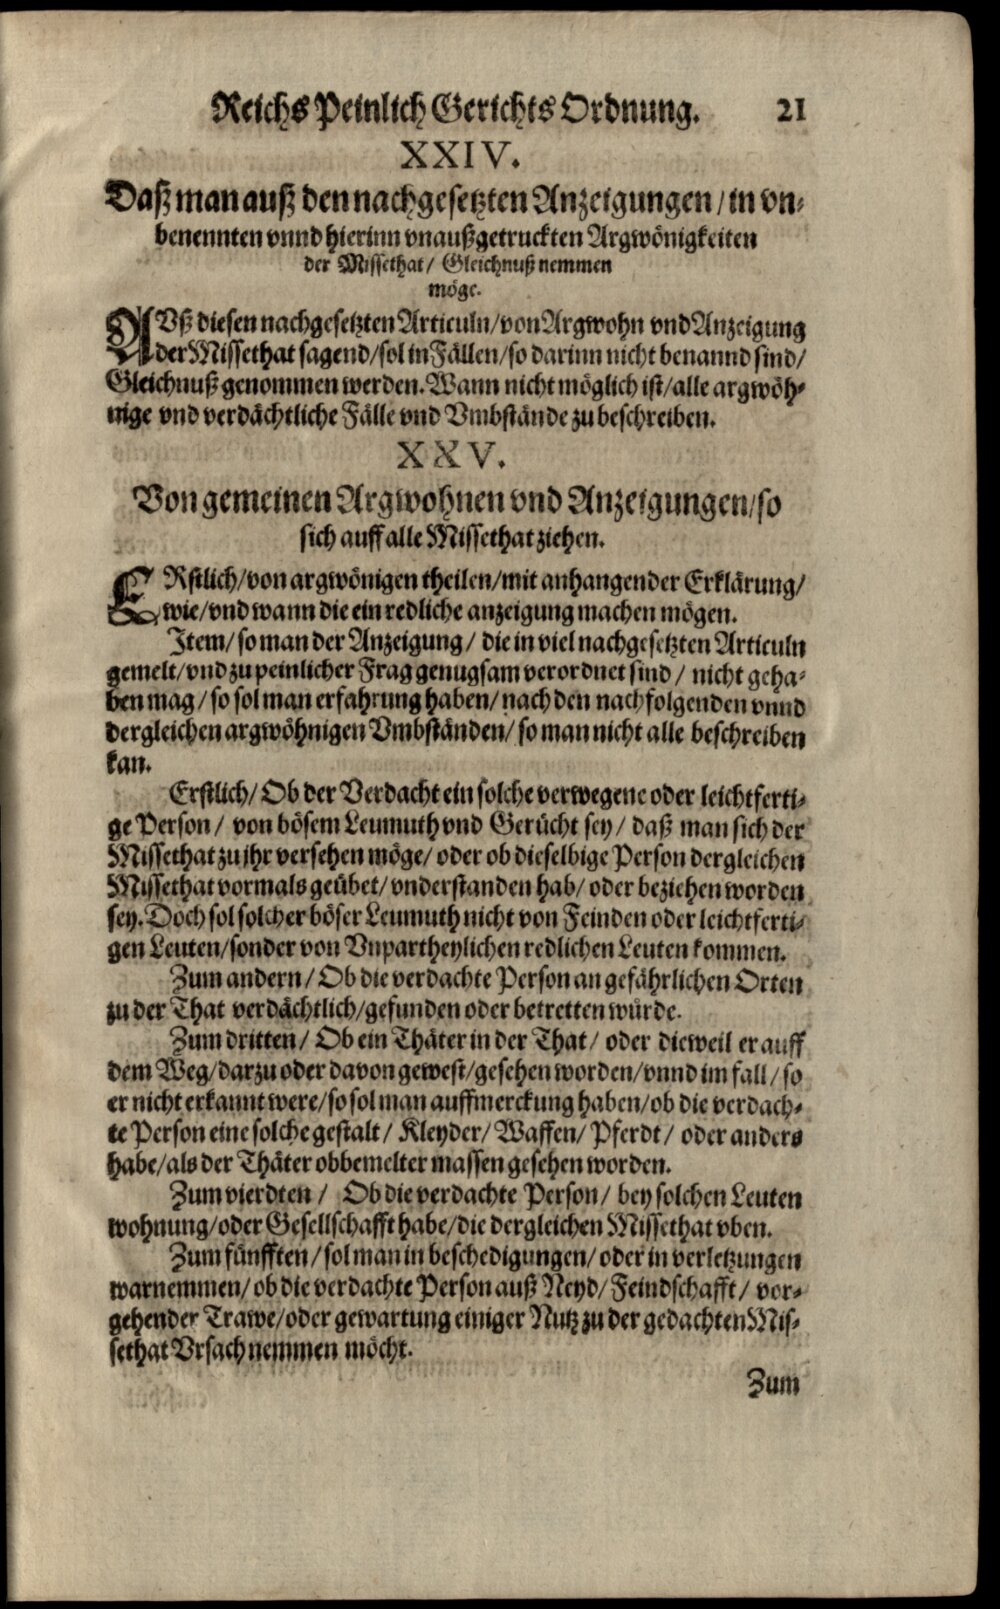 Reichs Peinlich Gerichts Ordnung. 21
XXIV.
Daß man auß den nachgesetzten Anzeigungen / in vn-
benennten vnnd hierinn vnaußgetruckten Argwönigkeiten
der Missethat / Gleichnuß nemmen
möge.
AVß diesen nachgesetzten Articuln / von Argwohn vnd Anzeigung
der Missethat sagend / sol in Fällen / so darinn nicht benannd sind /
Gleichnuß genommen werden. Wann nicht möglich ist / alle argwöh-
nige vnd verdächtliche Fälle vnd Vmbstände zu beschreiben.
XXV.
Von gemeinen Argwohnen vnd Anzeigungen / so
sich auff alle Missethat ziehen.
ERstlich / von argwönigen theilen / mit anhangender Erklärung /
wie / vnd wann die ein redliche anzeigung machen mögen.
Item / so man der Anzeigung / die in viel nachgesetzten Articuln
gemelt / vnd zu peinlicher Frag genugsam verordnet sind / nicht geha-
ben mag / so sol man erfahrung haben / nach den nachfolgenden vnnd
dergleichen argwöhnigen Vmbständen / so man nicht alle beschreiben
kan.
Erstlich / Ob der Verdacht ein solche verwegene oder leichtferti-
ge Person / von bösem Leumuth vnd Gerücht sey / daß man sich der
Missethat zu jhr versehen möge / oder ob dieselbige Person dergleichen
Missethat vormals geübet / vnderstanden hab / oder beziehen worden
sey. Doch sol solcher böser Leumuth nicht von Feinden oder leichtferti-
gen Leuten / sonder von Vnpartheylichen redlichen Leuten kommen.
Zum andern / Ob die verdachte Person an gefährlichen Orten
zu der That verdächtlich / gefunden oder betretten würde.
Zum dritten / Ob ein Thäter in der That / oder dieweil er auff
dem Weg / darzu oder davon gewest / gesehen worden / vnnd im fall / so
er nicht erkannt were / so sol man auffmerckung haben / ob die verdach-
te Person eine solche gestalt / Kleyder / Waffen / Pferdt / oder anders
habe / als der Thäter obbemelter massen gesehen worden.
Zum vierdten / Ob die verdachte Person / bey solchen Leuten
wohnung / oder Gesellschafft habe / die dergleichen Missethat vben.
Zum fünfften / sol man in beschedigungen / oder in verletzungen
warnemmen / ob die verdachte Person auß Neyd / Feindschafft / vor-
gehender Trawe / oder gewartung einiger Nutz zu der gedachten Mis-
sethat Vrsach nemmen möcht.
Zum